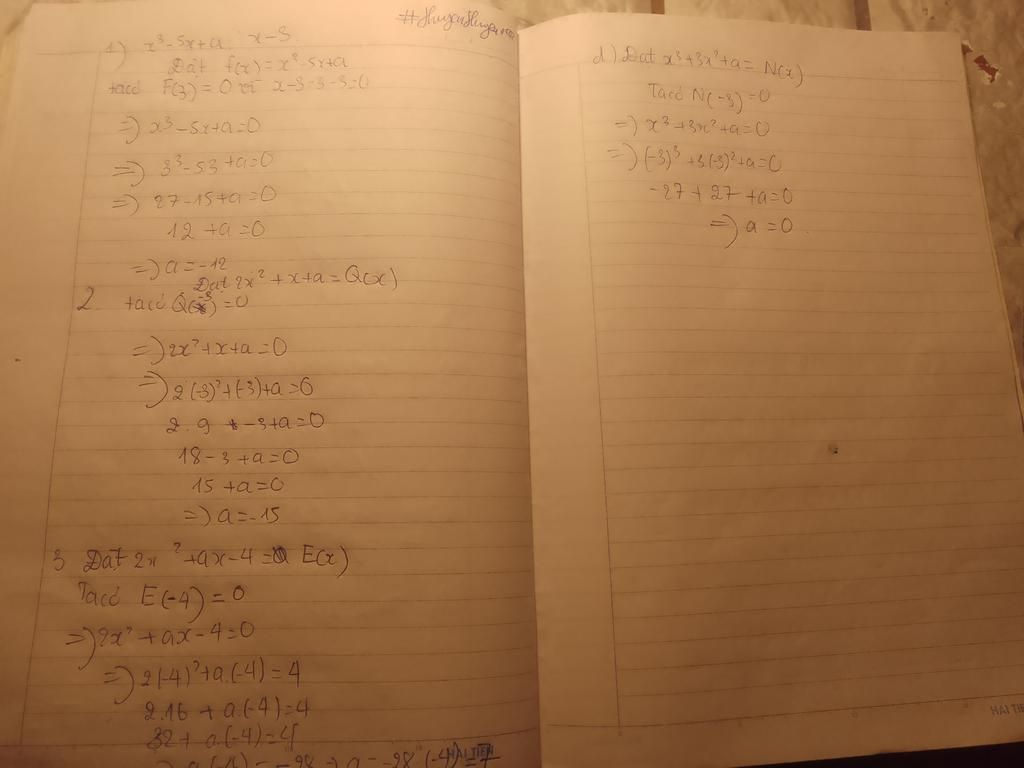 #HuyenHuyen
1) x³-5x+a : x-3
Đăt f(x)=x³-5x+a
tacó F(3)=0 vì x-3=3-3=0
=) x³-5x+a=0
=) 3³-53+a=0
=) 27-15+a=0
12+a=0
=) a=-12
2. Đăt 2x²+x+a=Q(x)
tacó Q(-3)=0
=) 2x²+x+a=0
=) 2(-3)²+(-3)+a=0
2.9 -3+a=0
18-3+a=0
15+a=0
=) a=-15
3 Đăt 2x²+ax-4= E(x)
Tacó E(-4)=0
=) 2x²+ax-4=0
=) 2(-4)²+a.(-4)=4
2.16+a.(-4)=4
32+a.(-4)=4
=) a(-4)=-28 → a=-28:(-4)=7
d) Đăt x³+3x²+a=N(x)
Tacó N(-3)=0
=) x³+3x²+a=0
=) (-3)³+3(-3)²+a=0
-27+27+a=0
=) a=0.
HẢI TIẾN